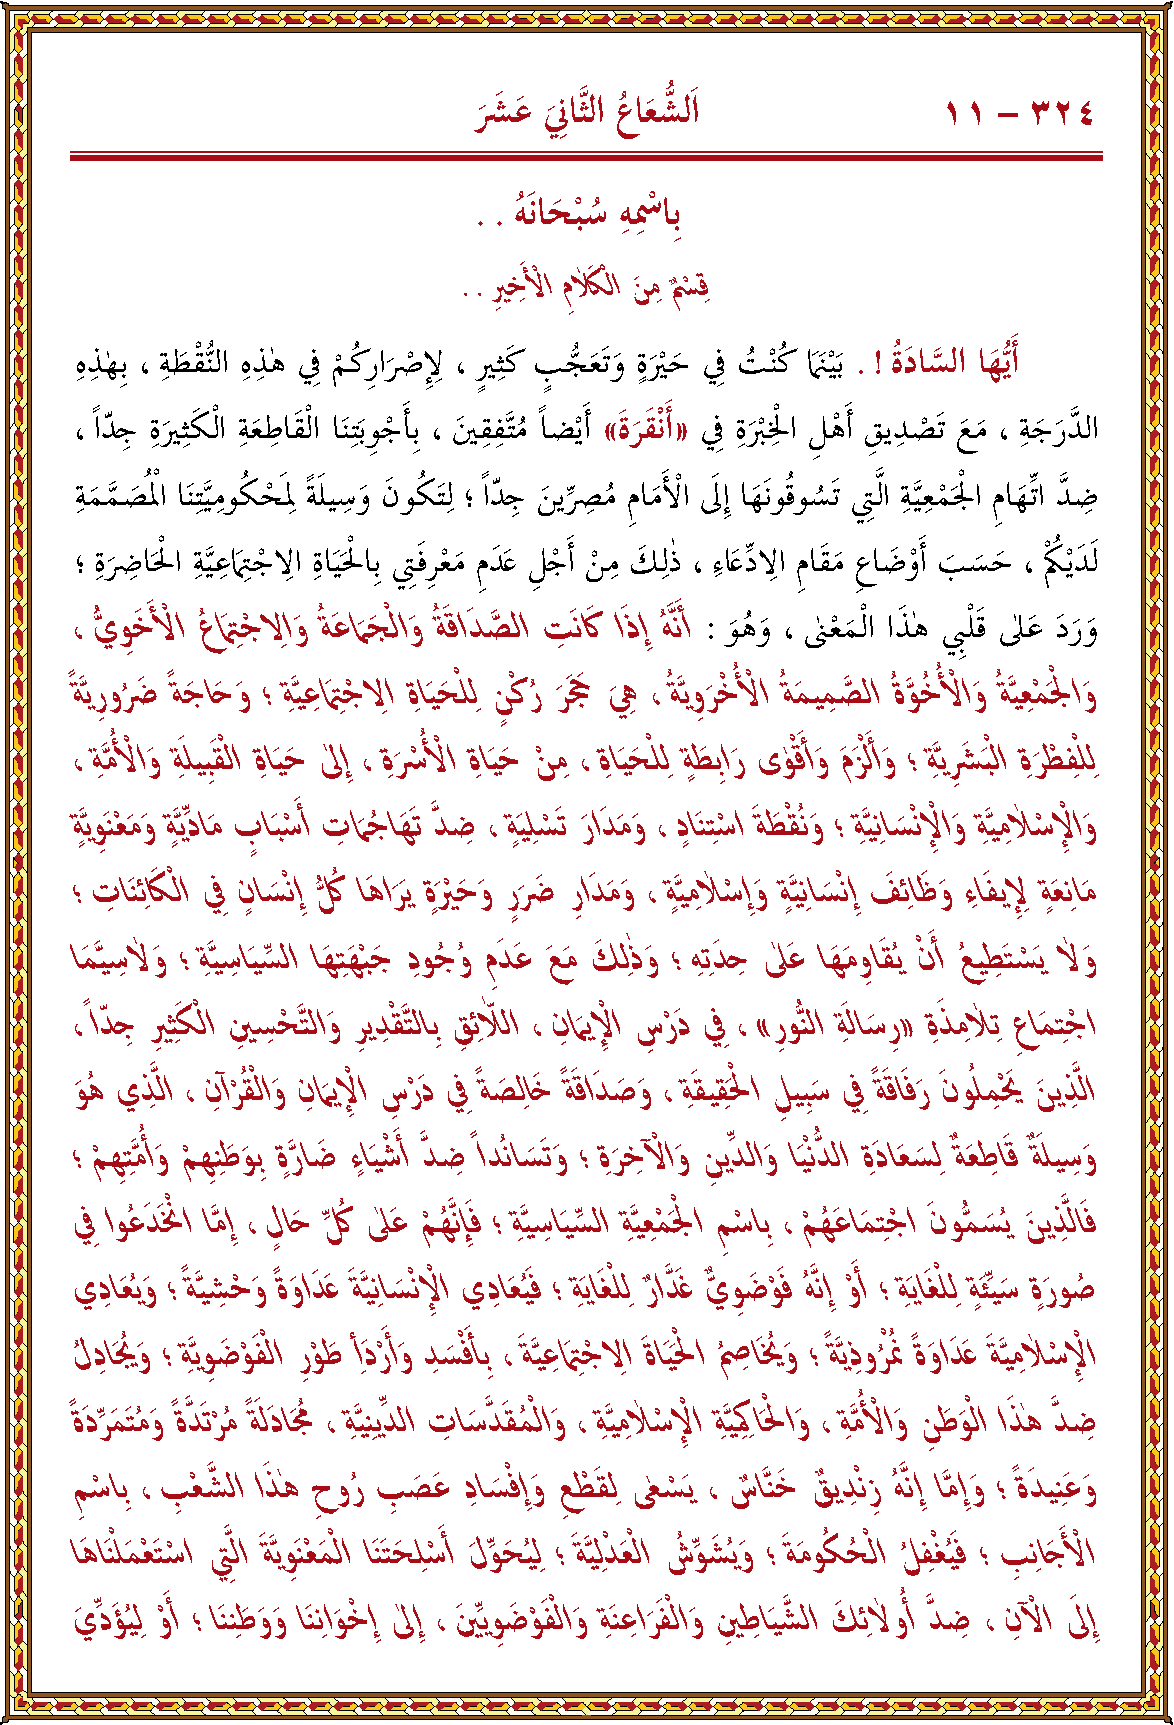 ٣٢٤ – ١١
اَلشُّعَاعُ الثَّانِيَ عَشَرَ
بِاسْمِهِ سُبْحَانَهُ . .
قِسْمٌ مِنَ الْكَلَامِ الْأَخِيرِ . .
أَيُّهَا السَّادَةُ ! . بَيْنَمَا كُنْتُ فِي حَيْرَةٍ وَتَعَجُّبٍ كَثِيرٍ ، لِإِصْرَارِكُمْ فِي هٰذِهِ النُّقْطَةِ ، بِهٰذِهِ
الدَّرَجَةِ ، مَعَ تَصْدِيقِ أَهْلِ الْخِبْرَةِ فِي «أَنْقَرَةَ» أَيْضاً مُتَّفِقِينَ ، بِأَجْوِبَتِنَا الْقَاطِعَةِ الْكَثِيرَةِ جِدّاً ،
ضِدَّ اتِّهَامِ الْجَمْعِيَّةِ الَّتِي تَسُوقُونَهَا إِلَى الْأَمَامِ مُصِرِّينَ جِدّاً ؛ لِتَكُونَ وَسِيلَةً لِمَحْكُومِيَّتِنَا الْمُصَمَّمَةِ
لَدَيْكُمْ ، حَسَبَ أَوْضَاعِ مَقَامِ الِادِّعَاءِ ، ذٰلِكَ مِنْ أَجْلِ عَدَمِ مَعْرِفَتِي بِالْحَيَاةِ الِاجْتِمَاعِيَّةِ الْحَاضِرَةِ ؛
وَرَدَ عَلٰى قَلْبِي هٰذَا الْمَعْنٰى ، وَهُوَ : أَنَّهُ إِذَا كَانَتِ الصَّدَاقَةُ وَالْجَمَاعَةُ وَالِاجْتِمَاعُ الْأَخَوِيُّ ،
وَالْجَمْعِيَّةُ وَالْأُخُوَّةُ الصَّمِيمَةُ الْأُخْرَوِيَّةُ ، هِيَ حَجَرَ رُكْنٍ لِلْحَيَاةِ الِاجْتِمَاعِيَّةِ ؛ وَحَاجَةً ضَرُورِيَّةً
لِلْفِطْرَةِ الْبَشَرِيَّةِ ؛ وَأَلْزَمَ وَأَقْوٰى رَابِطَةٍ لِلْحَيَاةِ ، مِنْ حَيَاةِ الْأُسْرَةِ ، إِلٰى حَيَاةِ الْقَبِيلَةِ وَالْأُمَّةِ ،
وَالْإِسْلَامِيَّةِ وَالْإِنْسَانِيَّةِ ؛ وَنُقْطَةَ اسْتِنَادٍ ، وَمَدَارَ تَسْلِيَةٍ ، ضِدَّ تَهَاجُمَاتِ أَسْبَابٍ مَادِّيَّةٍ وَمَعْنَوِيَّةٍ
مَانِعَةٍ لِإِيفَاءِ وَظَائِفَ إِنْسَانِيَّةٍ وَإِسْلَامِيَّةٍ ، وَمَدَارِ ضَرَرٍ وَحَيْرَةٍ يَرَاهَا كُلُّ إِنْسَانٍ فِي الْكَائِنَاتِ ؛
وَلَا يَسْتَطِيعُ أَنْ يُقَاوِمَهَا عَلٰى حِدَتِهِ ؛ وَذٰلِكَ مَعَ عَدَمِ وُجُودِ جَبْهَتِهَا السِّيَاسِيَّةِ ؛ وَلَاسِيَّمَا
اجْتِمَاعِ تِلَامِذَةِ «رِسَالَةِ النُّورِ» ، فِي دَرْسِ الْإِيمَانِ ، اللَّائِقِ بِالتَّقْدِيرِ وَالتَّحْسِينِ الْكَثِيرِ جِدّاً ،
الَّذِينَ يَحْمِلُونَ رَفَاقَةً فِي سَبِيلِ الْحَقِيقَةِ ، وَصَدَاقَةً خَالِصَةً فِي دَرْسِ الْإِيمَانِ وَالْقُرْآنِ ، الَّذِي هُوَ
وَسِيلَةٌ قَاطِعَةٌ لِسَعَادَةِ الدُّنْيَا وَالدِّينِ وَالْآخِرَةِ ؛ وَتَسَانُداً ضِدَّ أَشْيَاءٍ ضَارَّةٍ بِوَطَنِهِمْ وَأُمَّتِهِمْ ؛
فَالَّذِينَ يُسَمُّونَ اجْتِمَاعَهُمْ ، بِاسْمِ الْجَمْعِيَّةِ السِّيَاسِيَّةِ ؛ فَإِنَّهُمْ عَلٰى كُلِّ حَالٍ ، إِمَّا انْخَدَعُوا فِي
صُورَةٍ سَيِّئَةٍ لِلْغَايَةِ ؛ أَوْ إِنَّهُ فَوْضَوِيٌّ غَدَّارٌ لِلْغَايَةِ ؛ فَيُعَادِي الْإِنْسَانِيَّةَ عَدَاوَةً وَحْشِيَّةً ؛ وَيُعَادِي
الْإِسْلَامِيَّةَ عَدَاوَةً نُمْرُوذِيَّةً ؛ وَيُخَاصِمُ الْحَيَاةَ الِاجْتِمَاعِيَّةَ ، بِأَفْسَدِ وَأَرْدَأِ طَوْرِ الْفَوْضَوِيَّةِ ؛ وَيُجَادِلُ
ضِدَّ هٰذَا الْوَطَنِ وَالْأُمَّةِ ، وَالْحَاكِمِيَّةِ الْإِسْلَامِيَّةِ ، وَالْمُقَدَّسَاتِ الدِّينِيَّةِ ، مُجَادَلَةً مُرْتَدَّةً وَمُتَمَرِّدَةً
وَعَنِيدَةً ؛ وَإِمَّا إِنَّهُ زِنْدِيقٌ خَنَّاسٌ ، يَسْعٰى لِقَطْعِ وَإِفْسَادِ عَصَبِ رُوحِ هٰذَا الشَّعْبِ ، بِاسْمِ
الْأَجَانِبِ ؛ فَيُغْفِلُ الْحُكُومَةَ ؛ وَيُشَوِّشُ الْعَدْلِيَّةَ ؛ لِيُحَوِّلَ أَسْلِحَتَنَا الْمَعْنَوِيَّةَ الَّتِي اسْتَعْمَلْنَاهَا
إِلَى الْآنِ ، ضِدَّ أُولٰئِكَ الشَّيَاطِينِ وَالْفَرَاعِنَةِ وَالْفَوْضَوِيِّينَ ، إِلٰى إِخْوَانِنَا وَوَطَنِنَا ؛ أَوْ لِيُؤَدِّيَ